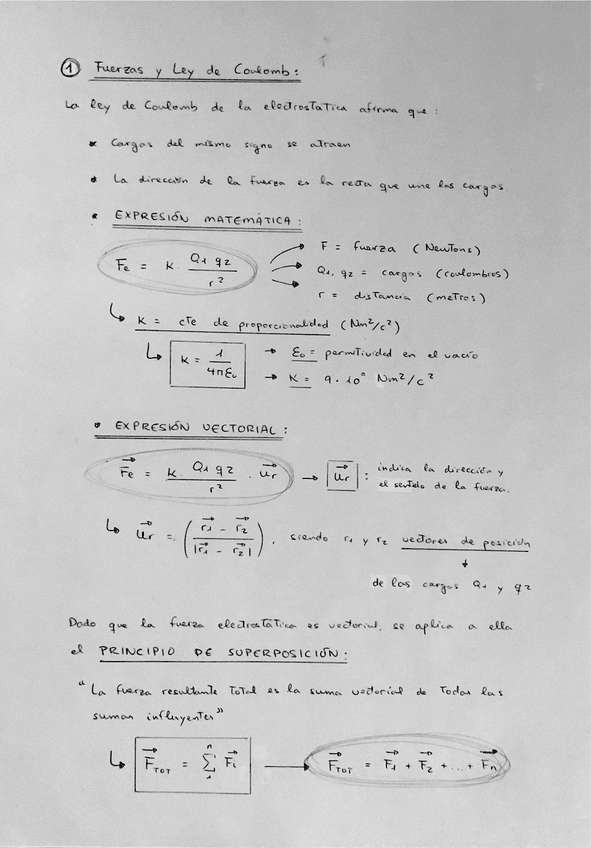 ① Fuerzas y Ley de Coulomb:
La ley de Coulomb de la electrostática afirma que:
* Cargas del mismo signo se atraen
* La dirección de la fuerza es la recta que une las cargas
* EXPRESIÓN MATEMÁTICA:
Fe = K · Q1 q2 / r²
→ F = fuerza (Newtons)
→ Q1, q2 = cargas (coulombios)
→ r = distancia (metros)
↳ K = cte de proporcionalidad (Nm²/c²)
↳ K = 1 / 4πε₀ → ε₀ = permitividad en el vacío
→ K = 9 · 10⁹ Nm²/c²
* EXPRESIÓN VECTORIAL:
F⃗e = K · Q1 q2 / r² · u⃗r → u⃗r : indica la dirección y
el sentido de la fuerza.
↳ u⃗r = (r⃗1 - r⃗2 / |r⃗1 - r⃗2|), siendo r1 y r2 vectores de posición
↓
de las cargas Q1 y q2
Dado que la fuerza electrostática es vectorial, se aplica a ella
el PRINCIPIO DE SUPERPOSICIÓN:
"La fuerza resultante total es la suma vectorial de todas las
sumas influyentes"
↳ F⃗TOT = Σ₁ⁿ F⃗i → F⃗TOT = F⃗1 + F⃗2 + ... + F⃗n